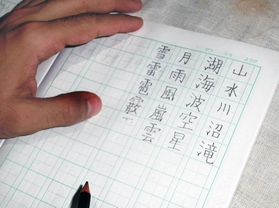 山水川沼滝
湖海波空星
月雨風嵐雲
雪雷電霰